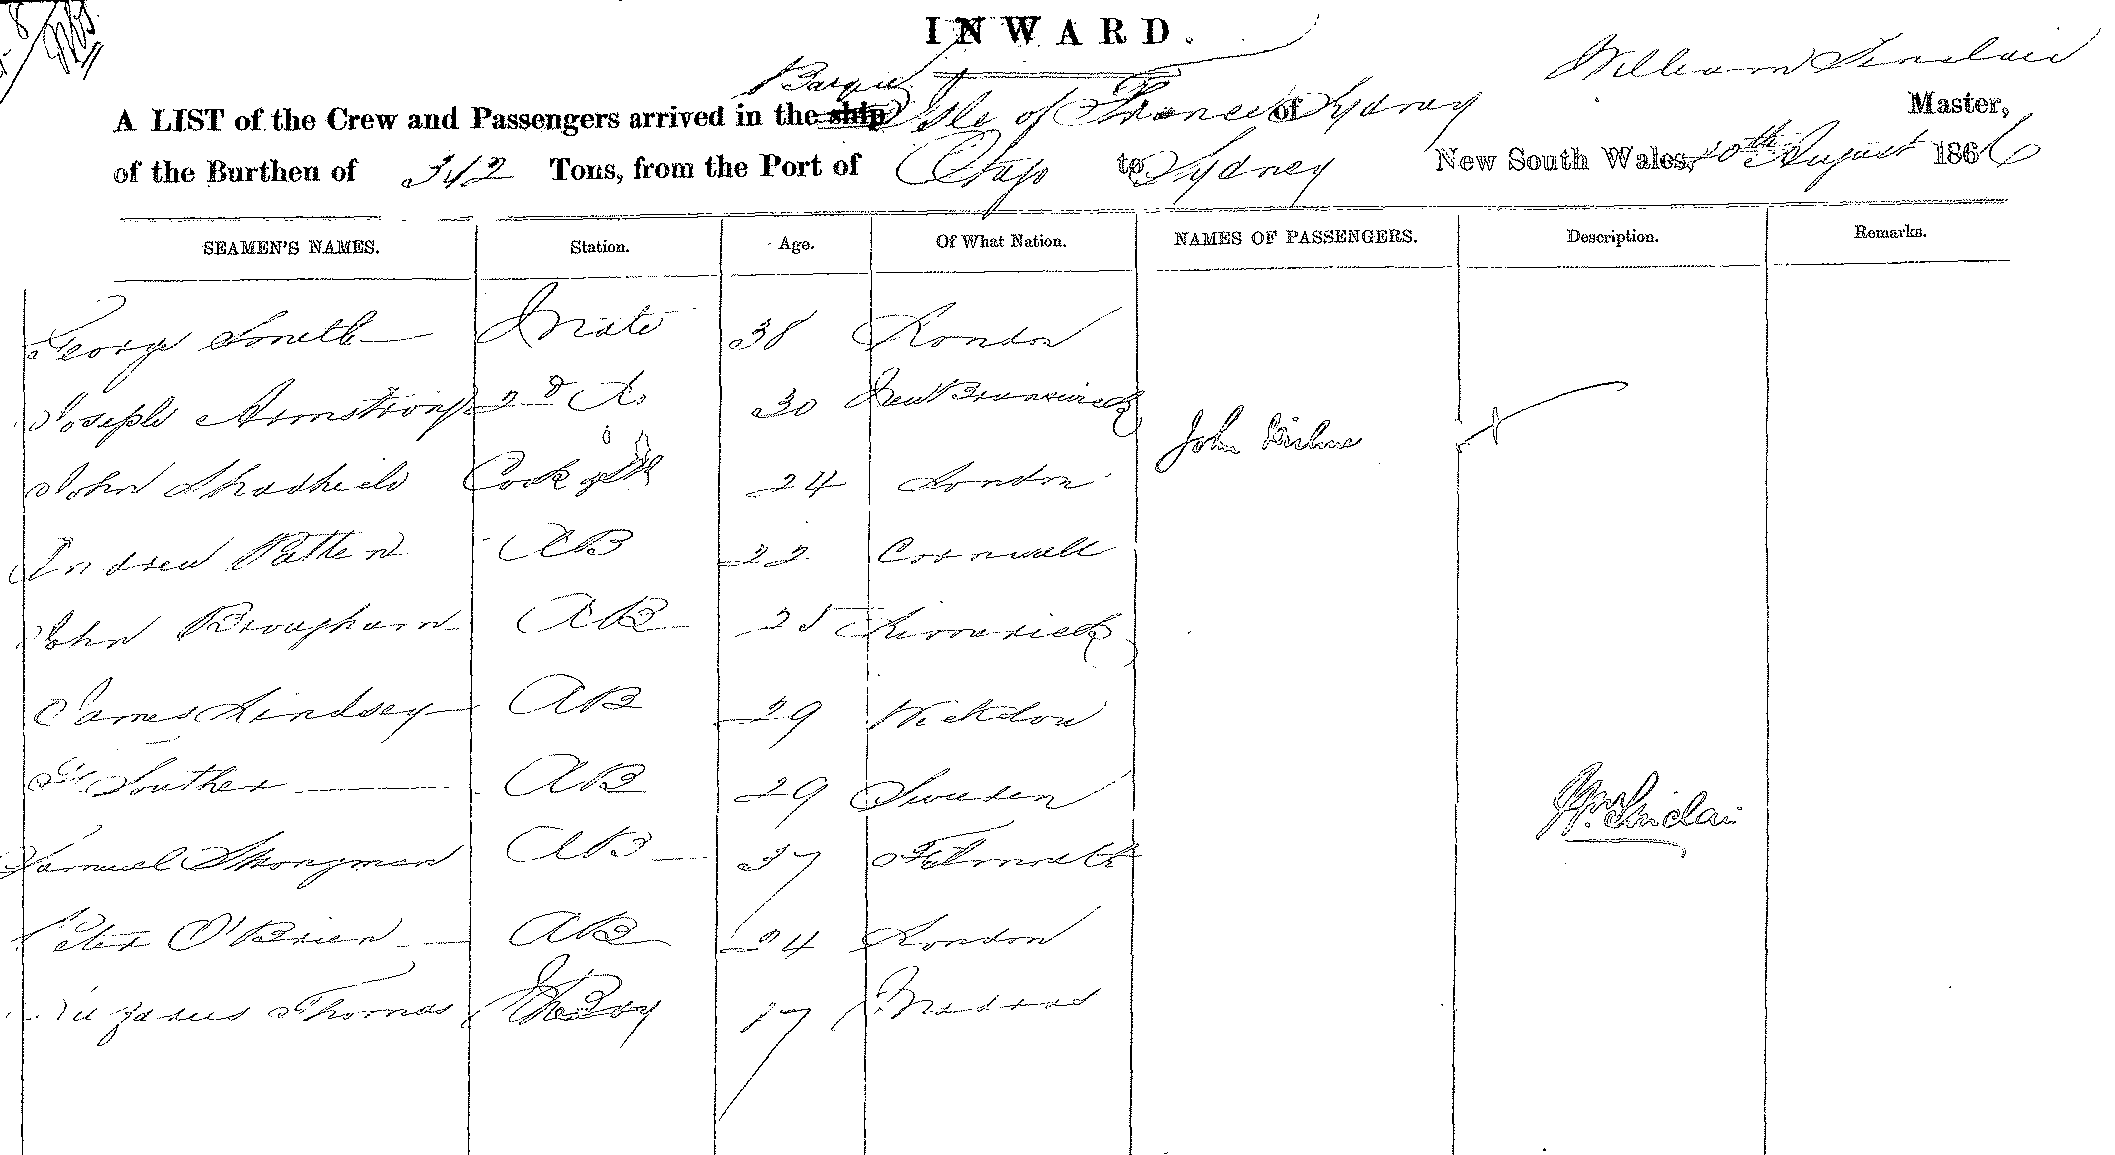 INWARD.
William Sinclair
Barque
A LIST of the Crew and Passengers arrived in the ship Isle of France of Sydney Master,
of the Burthen of 312 Tons, from the Port of Otago to Sydney New South Wales, 10th August 1866
SEAMEN'S NAMES. Station. Age. Of What Nation. NAMES OF PASSENGERS. Description. Remarks.
George Smith Mate 38 London
Joseph Armstrong 2d Do 30 New Brunswick
John
John Cook 24 London
Andrew Patten AB 22 Cornwall
John Brougham AB 25 Limerick
James Lindsey AB 29 Wicklow
Souther AB 29 Sweden
Wm Sinclair
Samuel Strongman AB 37 Falmouth
Peter O'Brien AB 24 London
Thomas Boy 17 Madras